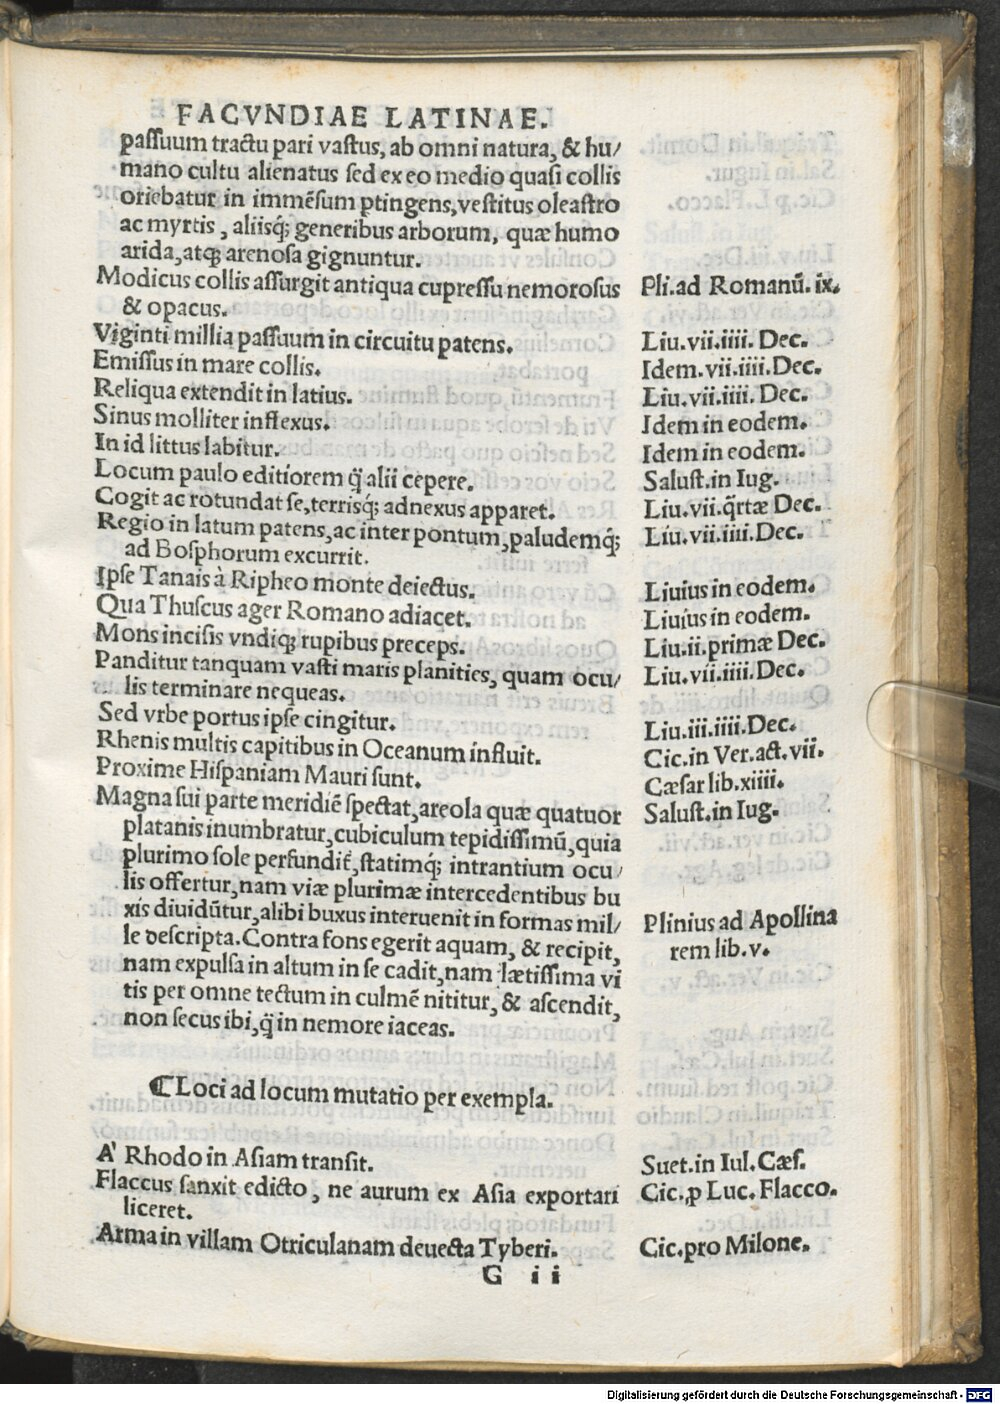 FACVNDIAE LATINAE.
passuum tractu pari vastus, ab omni natura, & hu/
mano cultu alienatus sed ex eo medio quasi collis
oriebatur in immēsum ptingens, vestitus oleastro
ac myrtis, aliisq; generibus arborum, quæ humo
arida, atq; arenosa gignuntur.
Modicus collis assurgit antiqua cupressu nemorosus Pli. ad Romanū. ix.
& opacus.
Viginti millia passuum in circuitu patens. Liu. vii. iiii. Dec.
Emissus in mare collis. Idem. vii. iiii. Dec.
Reliqua extendit in latius. Liu. vii. iiii. Dec.
Sinus molliter inflexus. Idem in eodem.
In id littus labitur. Idem in eodem.
Locum paulo editiorem q̄ alii cepere. Salust. in Iug.
Cogit ac rotundat se, terrisq; adnexus apparet. Liu. vii. q̄rtæ Dec.
Regio in latum patens, ac inter pontum, paludemq; Liu. vii. iiii. Dec.
ad Bosphorum excurrit.
Ipse Tanais à Ripheo monte deiectus. Liuius in eodem.
Qua Thuscus ager Romano adiacet. Liuius in eodem.
Mons incisis vndiq; rupibus preceps. Liu. ii. primæ Dec.
Panditur tanquam vasti maris planities, quam ocu/ Liu. vii. iiii. Dec.
lis terminare nequeas.
Sed vrbe portus ipse cingitur. Liu. iii. iiii. Dec.
Rhenis multis capitibus in Oceanum influit. Cic. in Ver. act. vii.
Proxime Hispaniam Mauri sunt. Cæsar lib. xiiii.
Magna sui parte meridiē spectat, areola quæ quatuor Salust. in Iug.
platanis inumbratur, cubiculum tepidissimū, quia
plurimo sole perfundit̄, statimq; intrantium ocu/
lis offertur, nam viæ plurimæ intercedentibus bu
xis diuidūtur, alibi buxus interuenit in formas mil/ Plinius ad Apollina
le descripta. Contra fons egerit aquam, & recipit, rem lib. v.
nam expulsa in altum in se cadit, nam lætissima vi
tis per omne tectum in culmē nititur, & ascendit,
non secus ibi, q̄ in nemore iaceas.
¶ Loci ad locum mutatio per exempla.
A' Rhodo in Asiam transit. Suet. in Iul. Cæs.
Flaccus sanxit edicto, ne aurum ex Asia exportari Cic. p Luc. Flacco.
liceret.
Arma in villam Otriculanam deuecta Tyberi. Cic. pro Milone.
G ii
Digitalisierung gefördert durch die Deutsche Forschungsgemeinschaft - DFG